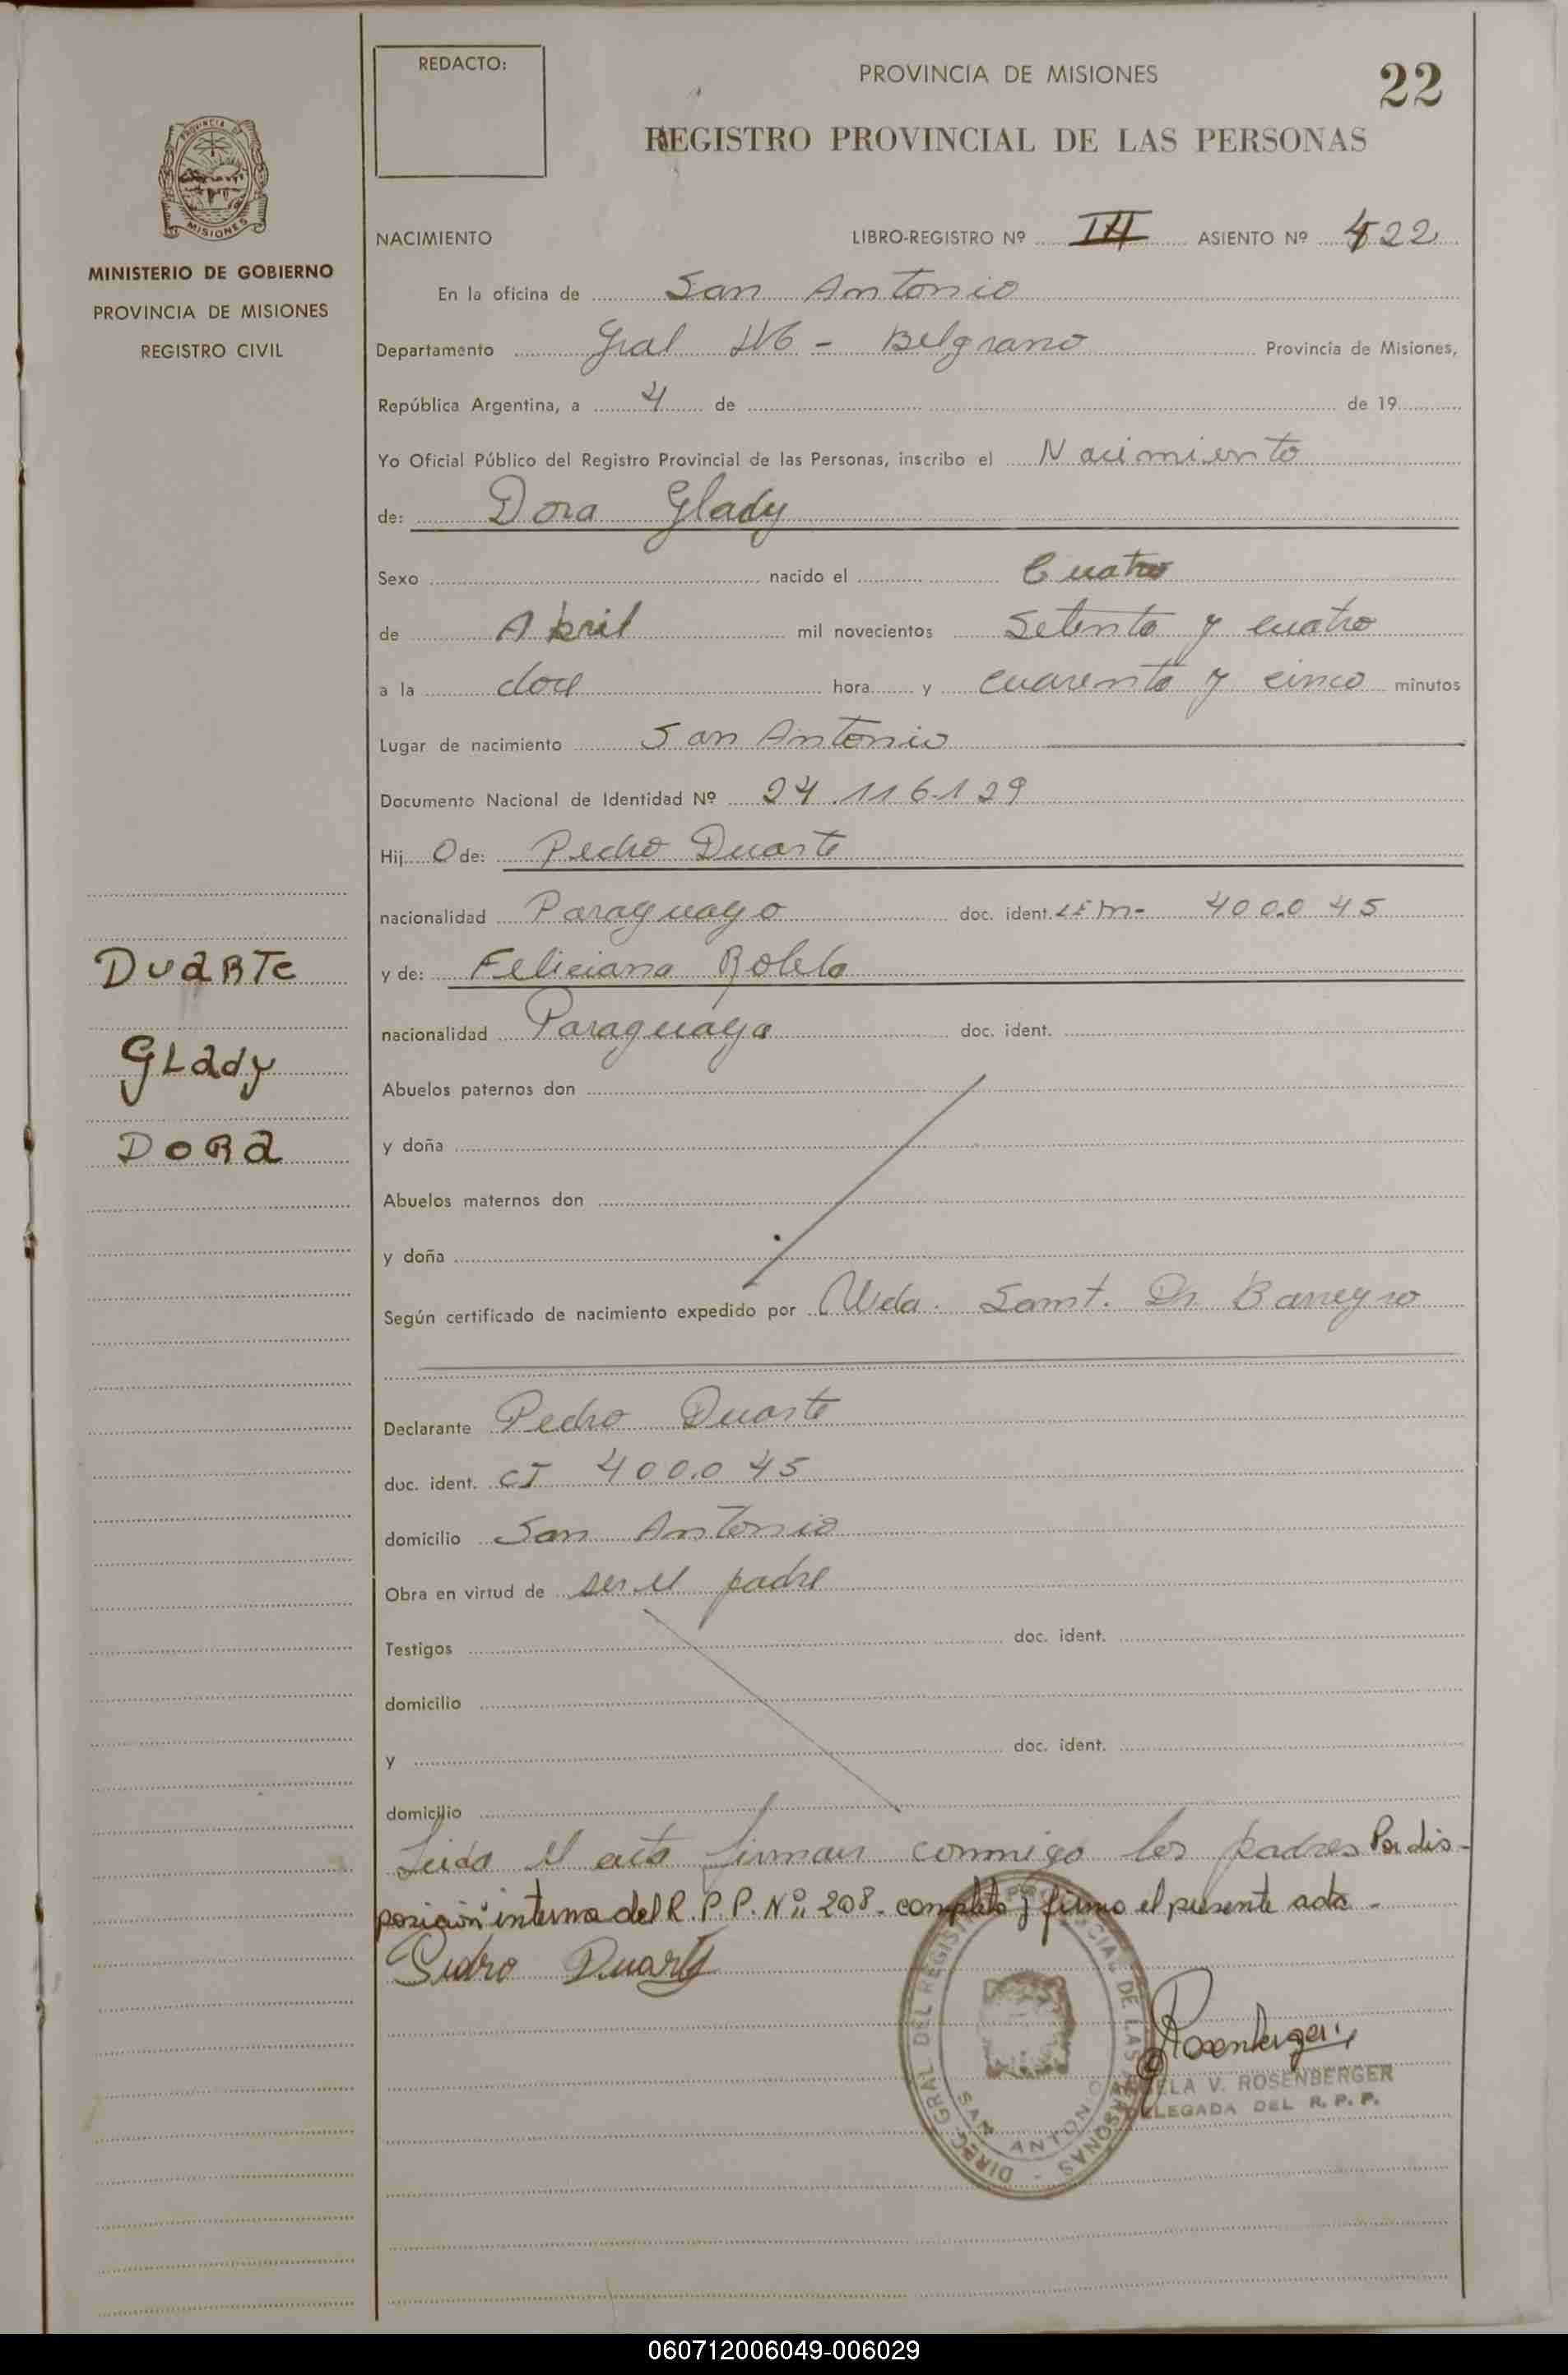 REDACTO:
PROVINCIA DE MISIONES
22
REGISTRO PROVINCIAL DE LAS PERSONAS
PROVINCIA DE
MISIONES
MINISTERIO DE GOBIERNO
PROVINCIA DE MISIONES
REGISTRO CIVIL
NACIMIENTO LIBRO-REGISTRO Nº III ASIENTO Nº 422
En la oficina de San Antonio
Departamento Gral Belgrano Provincia de Misiones,
República Argentina, a 4 de de 19
Yo Oficial Público del Registro Provincial de las Personas, inscribo el Nacimiento
de: Dora Glady
Sexo nacido el Cuatro
de Abril mil novecientos Setenta y cuatro
a la doce hora y cuarenta y cinco minutos
Lugar de nacimiento San Antonio
Documento Nacional de Identidad Nº 24.116.129
Hij O de: Pedro Duarte
nacionalidad Paraguayo doc. ident. 400.045
DUARTE
y de: Feliciana
nacionalidad Paraguaya doc. ident.
GLady
Abuelos paternos don
DORA
y doña
Abuelos maternos don
y doña
Según certificado de nacimiento expedido por Dr Barreyro
Declarante Pedro Duarte
doc. ident. CI 400.045
domicilio San Antonio
Obra en virtud de ser el padre
Testigos doc. ident.
domicilio
y doc. ident.
domicilio
Leida el acta firman conmigo los padres Por dis-
posición interna del R.P.P. Nº 208. completo y firmo el presente acta -
Pedro Duarte
DIREC. GRAL DEL REGISTRO PROVINCIAL DE LAS PERSONAS
SAN ANTONIO
Rosenberger
ANGELA V. ROSENBERGER
DELEGADA DEL R. P. P.
060712006049-006029